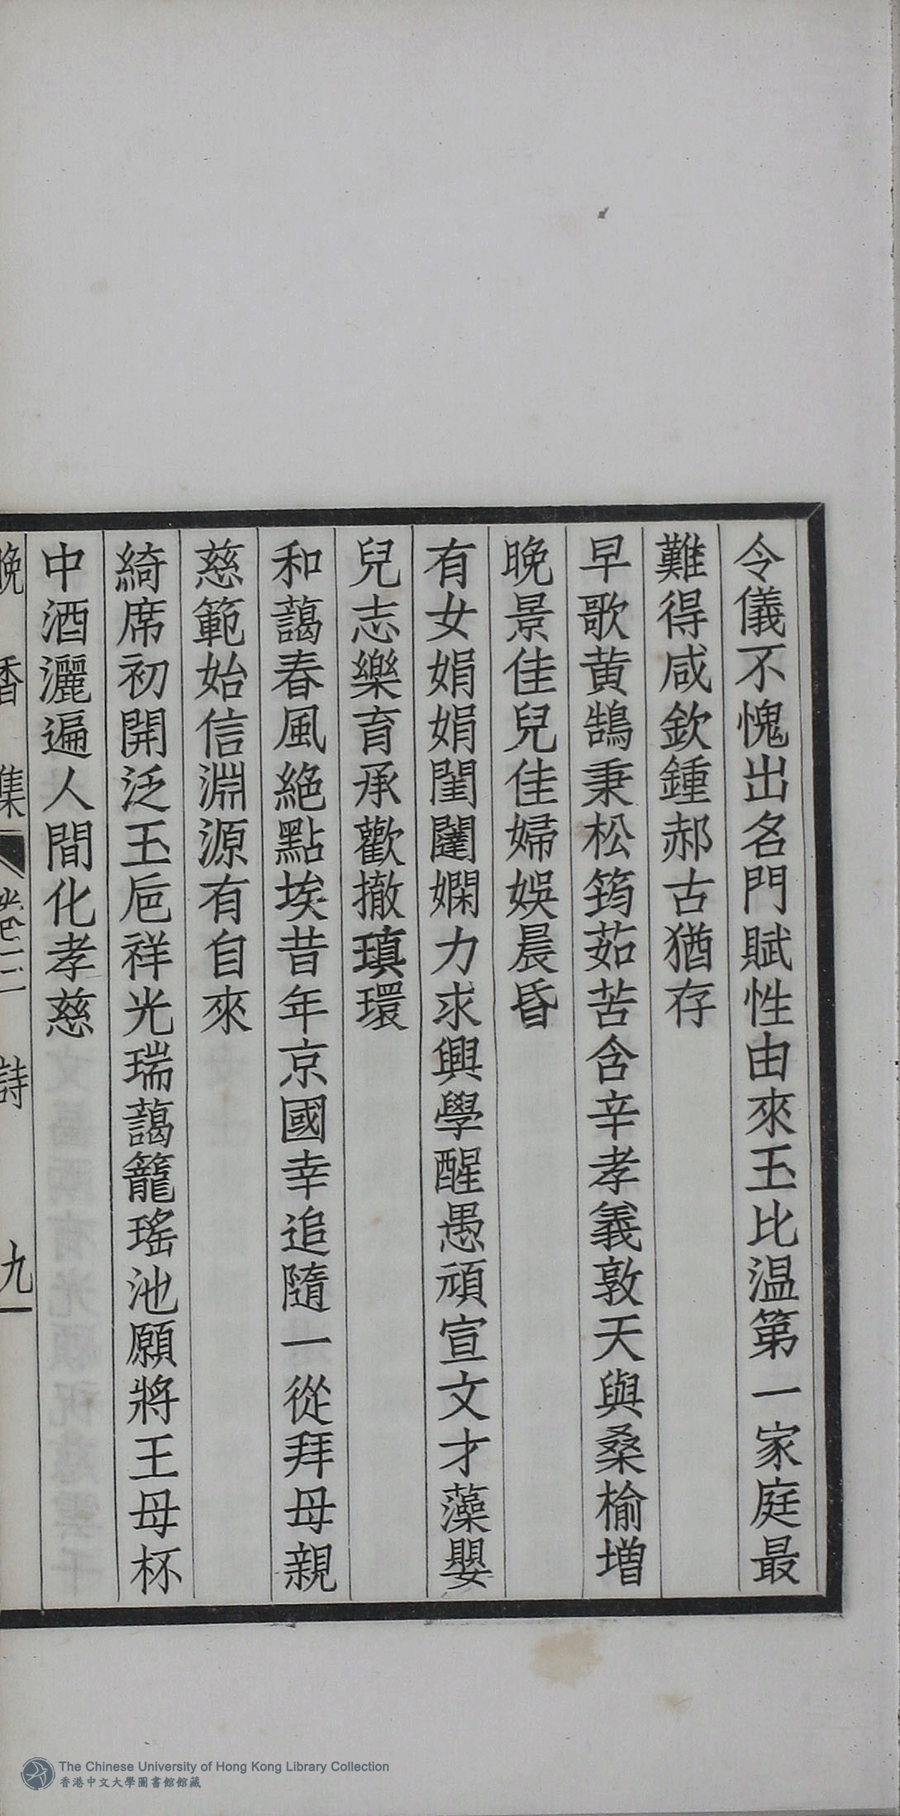 令儀不愧出名門賦性由來玉比温第一家庭最
難得咸欽鍾郝古猶存
早歌黄鵠秉松筠茹苦含辛孝義敦天與桑榆增
晚景佳兒佳婦娛晨昏
有女娟娟閨闥嫻力求興學醒愚頑宣文才藻嬰
兒志樂育承歡撤瑱環
和藹春風絶點埃昔年京國幸追隨一從拜母親
慈範始信淵源有自來
綺席初開泛玉巵祥光瑞藹籠瑤池願將王母杯
中酒灑遍人間化孝慈
晚香集 卷二 詩 九
The Chinese University of Hong Kong Library Collection
香港中文大學圖書館館藏